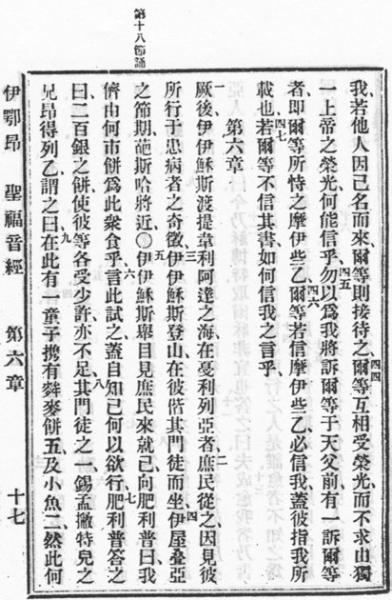 第十八節誦
我若他人因己名而來爾等則接待之爾等互相受榮光而不求由獨
四四
一上帝之榮光何能信乎勿以爲我將訴爾等于天父前有一訴爾等
四五
者即爾等所恃之摩伊些乙爾等若信摩伊些乙必信我蓋彼指我所
四六
載也若爾等不信其書如何信我之言乎
四七
第六章
厥後伊伊穌斯渡提韋利阿達之海在戞利列亞者庶民從之因見彼
一
二
所行于患病者之奇徵伊伊穌斯登山在彼偕其門徒而坐伊屋疊亞
三
四
之節期葩斯哈將近○伊伊穌斯舉目見庶民來就己向肥利普曰我
五
儕由何市餅爲此衆食乎言此試之蓋自知己何以欲行肥利普答之
六
七
曰二百銀之餅使彼等各受少許亦不足其門徒之一錫孟撇特兒之
八
兄昂得列乙謂之曰在此有一童子攜有麰麥餅五及小魚二然此何
九
伊鄂昂 聖福音經 第六章 十七